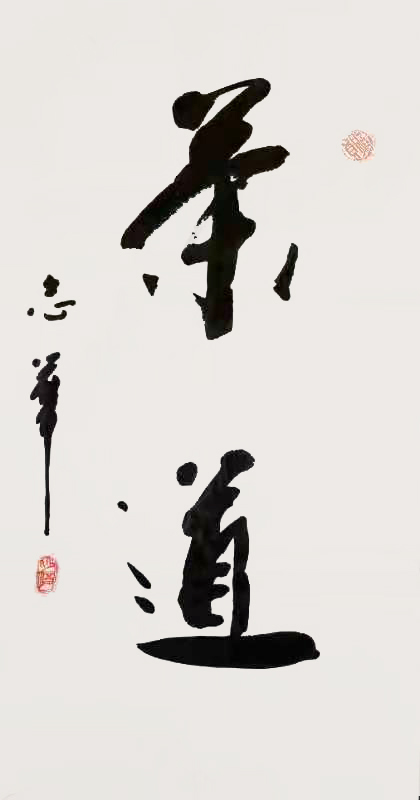 茶道
志華